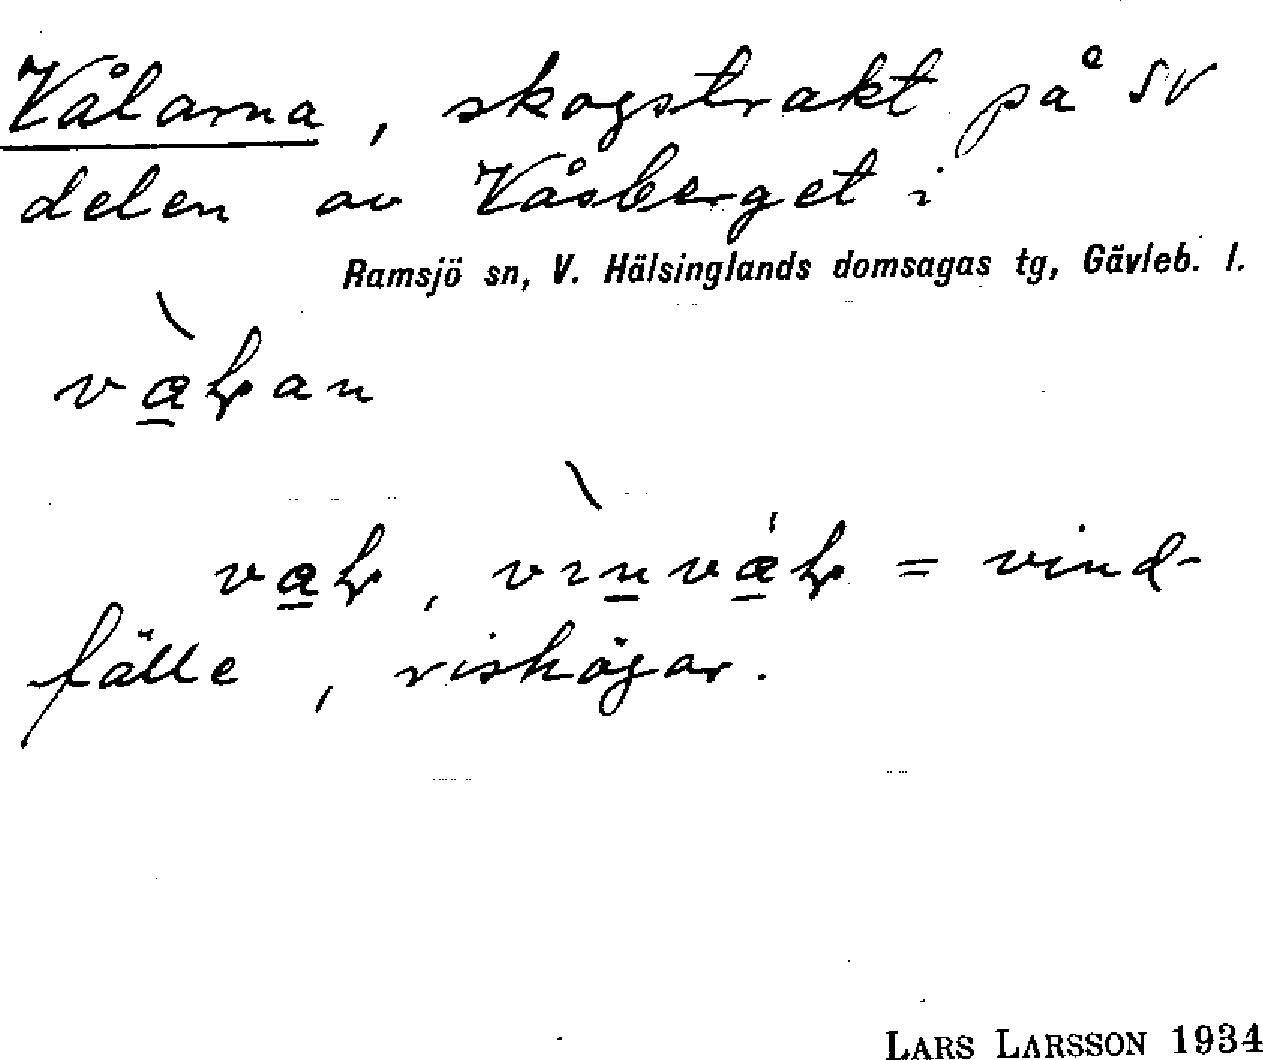 Vålarna, skogstrakt på SV
delen av Våsberget i
Ramsjö sn, V. Hälsinglands domsagas tg, Gävleb. l.
= vind-
fälle, rishögar.
LARS LARSSON 1934